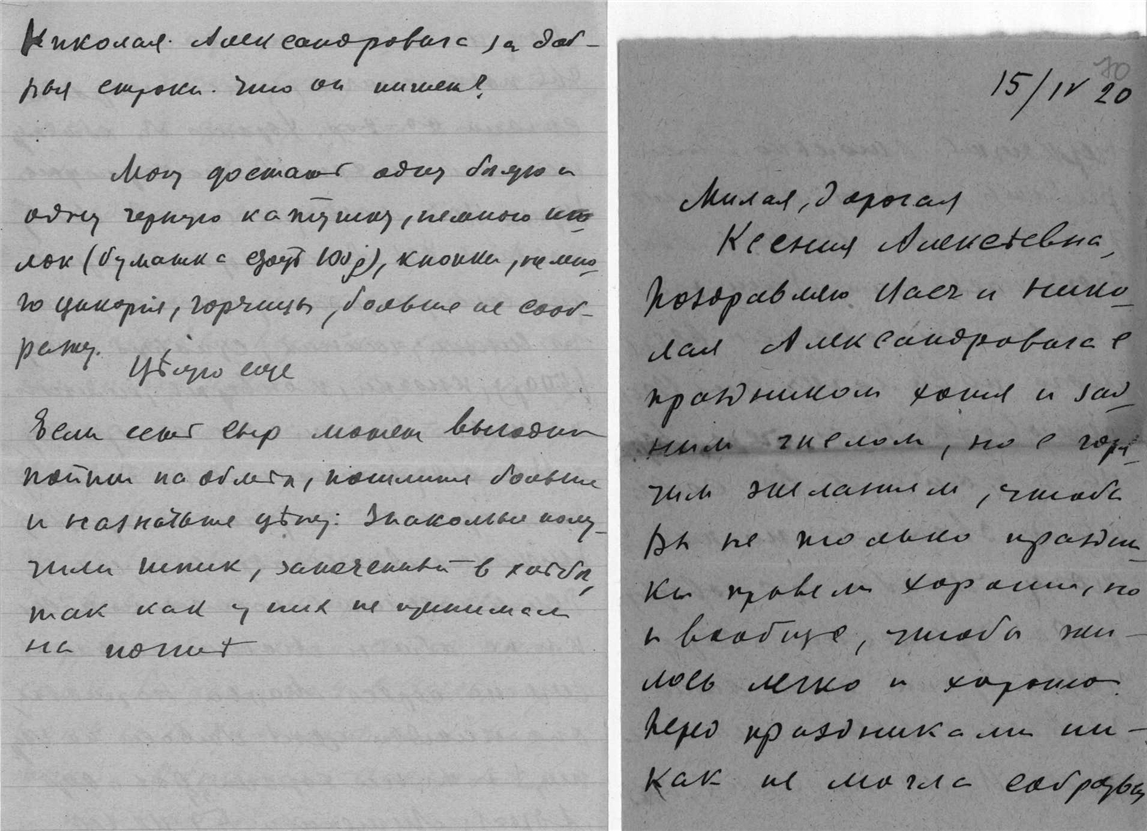 Николая Александровича за доб-
рыя строки. Что он пишет?
Могу достать одну белую и
одну черную катушку, немного
лок (бумажка 100 р), кнопки, немно-
го цикория, горчицы, больше не сооб-
ражу.
Целую еще
Если сыр может выгодно
пойти на обмен, пошлите больше
и назначьте цену. Знакомые полу-
чили шпик, запеченный в хлебе,
так как у них не принимали
на почте
70
15/IV 20
Милая, дорогая
Ксения Алексеевна,
Поздравляю Васъ и Нико-
лая Александровича с
праздником хотя и зад-
ним числом, но с горя-
чим желанием, чтобы
Вы не только праздни-
ки провели хорошо, но
и вообще, чтобы жи-
лось легко и хорошо.
Перед праздниками ни-
как не могла